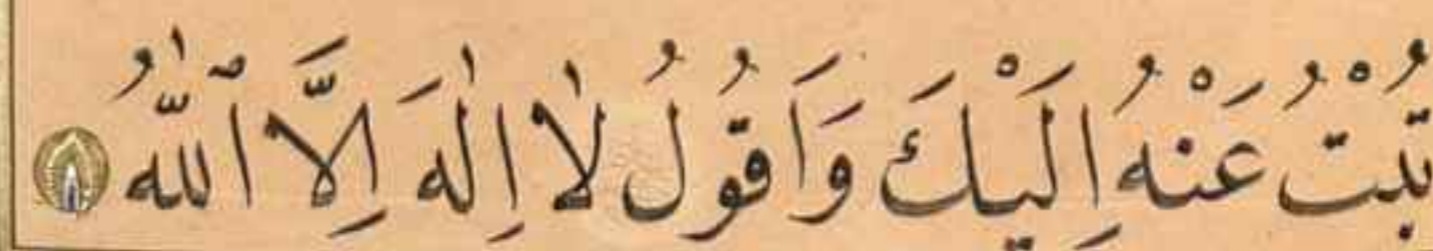 تُبْتُ عَنْهُ اِلَيْكَ وَاَقُولُ لَا اِلٰهَ اِلَّا ٱللّٰهُ